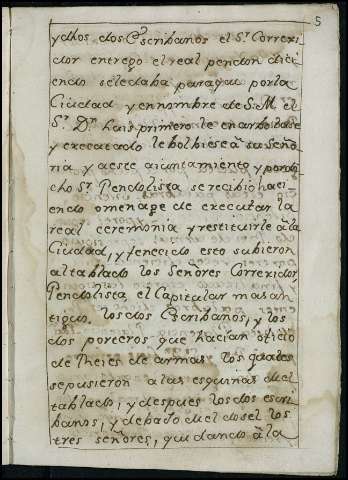 5
y dhos dos Escribanos el Sr. Correxi
dor entrego el real pendon dici
endo se le daba para que por la
Ciudad y en nombre de S. M. el
Sr. Dn. Luis primero le enarbolase
y executado le bolbiese à su Seño
ria y a este aiuntamiento y por di
cho Sr. Pendolista se recibio haci
endo omenage de executar la
real ceremonia y restituirle à la
Ciudad, y fenecido esto subieron
al tablado los Señores Correxidor
Pendolista, el Capitular mas an
tiguo, los dos Escribanos, y los
dos porteros que hacian oficio
de Reies de armas los quales
se pusieron a las esquinas del
tablado, y despues los dos escri
banos, y debajo del dosel los
tres señores, quedando à la